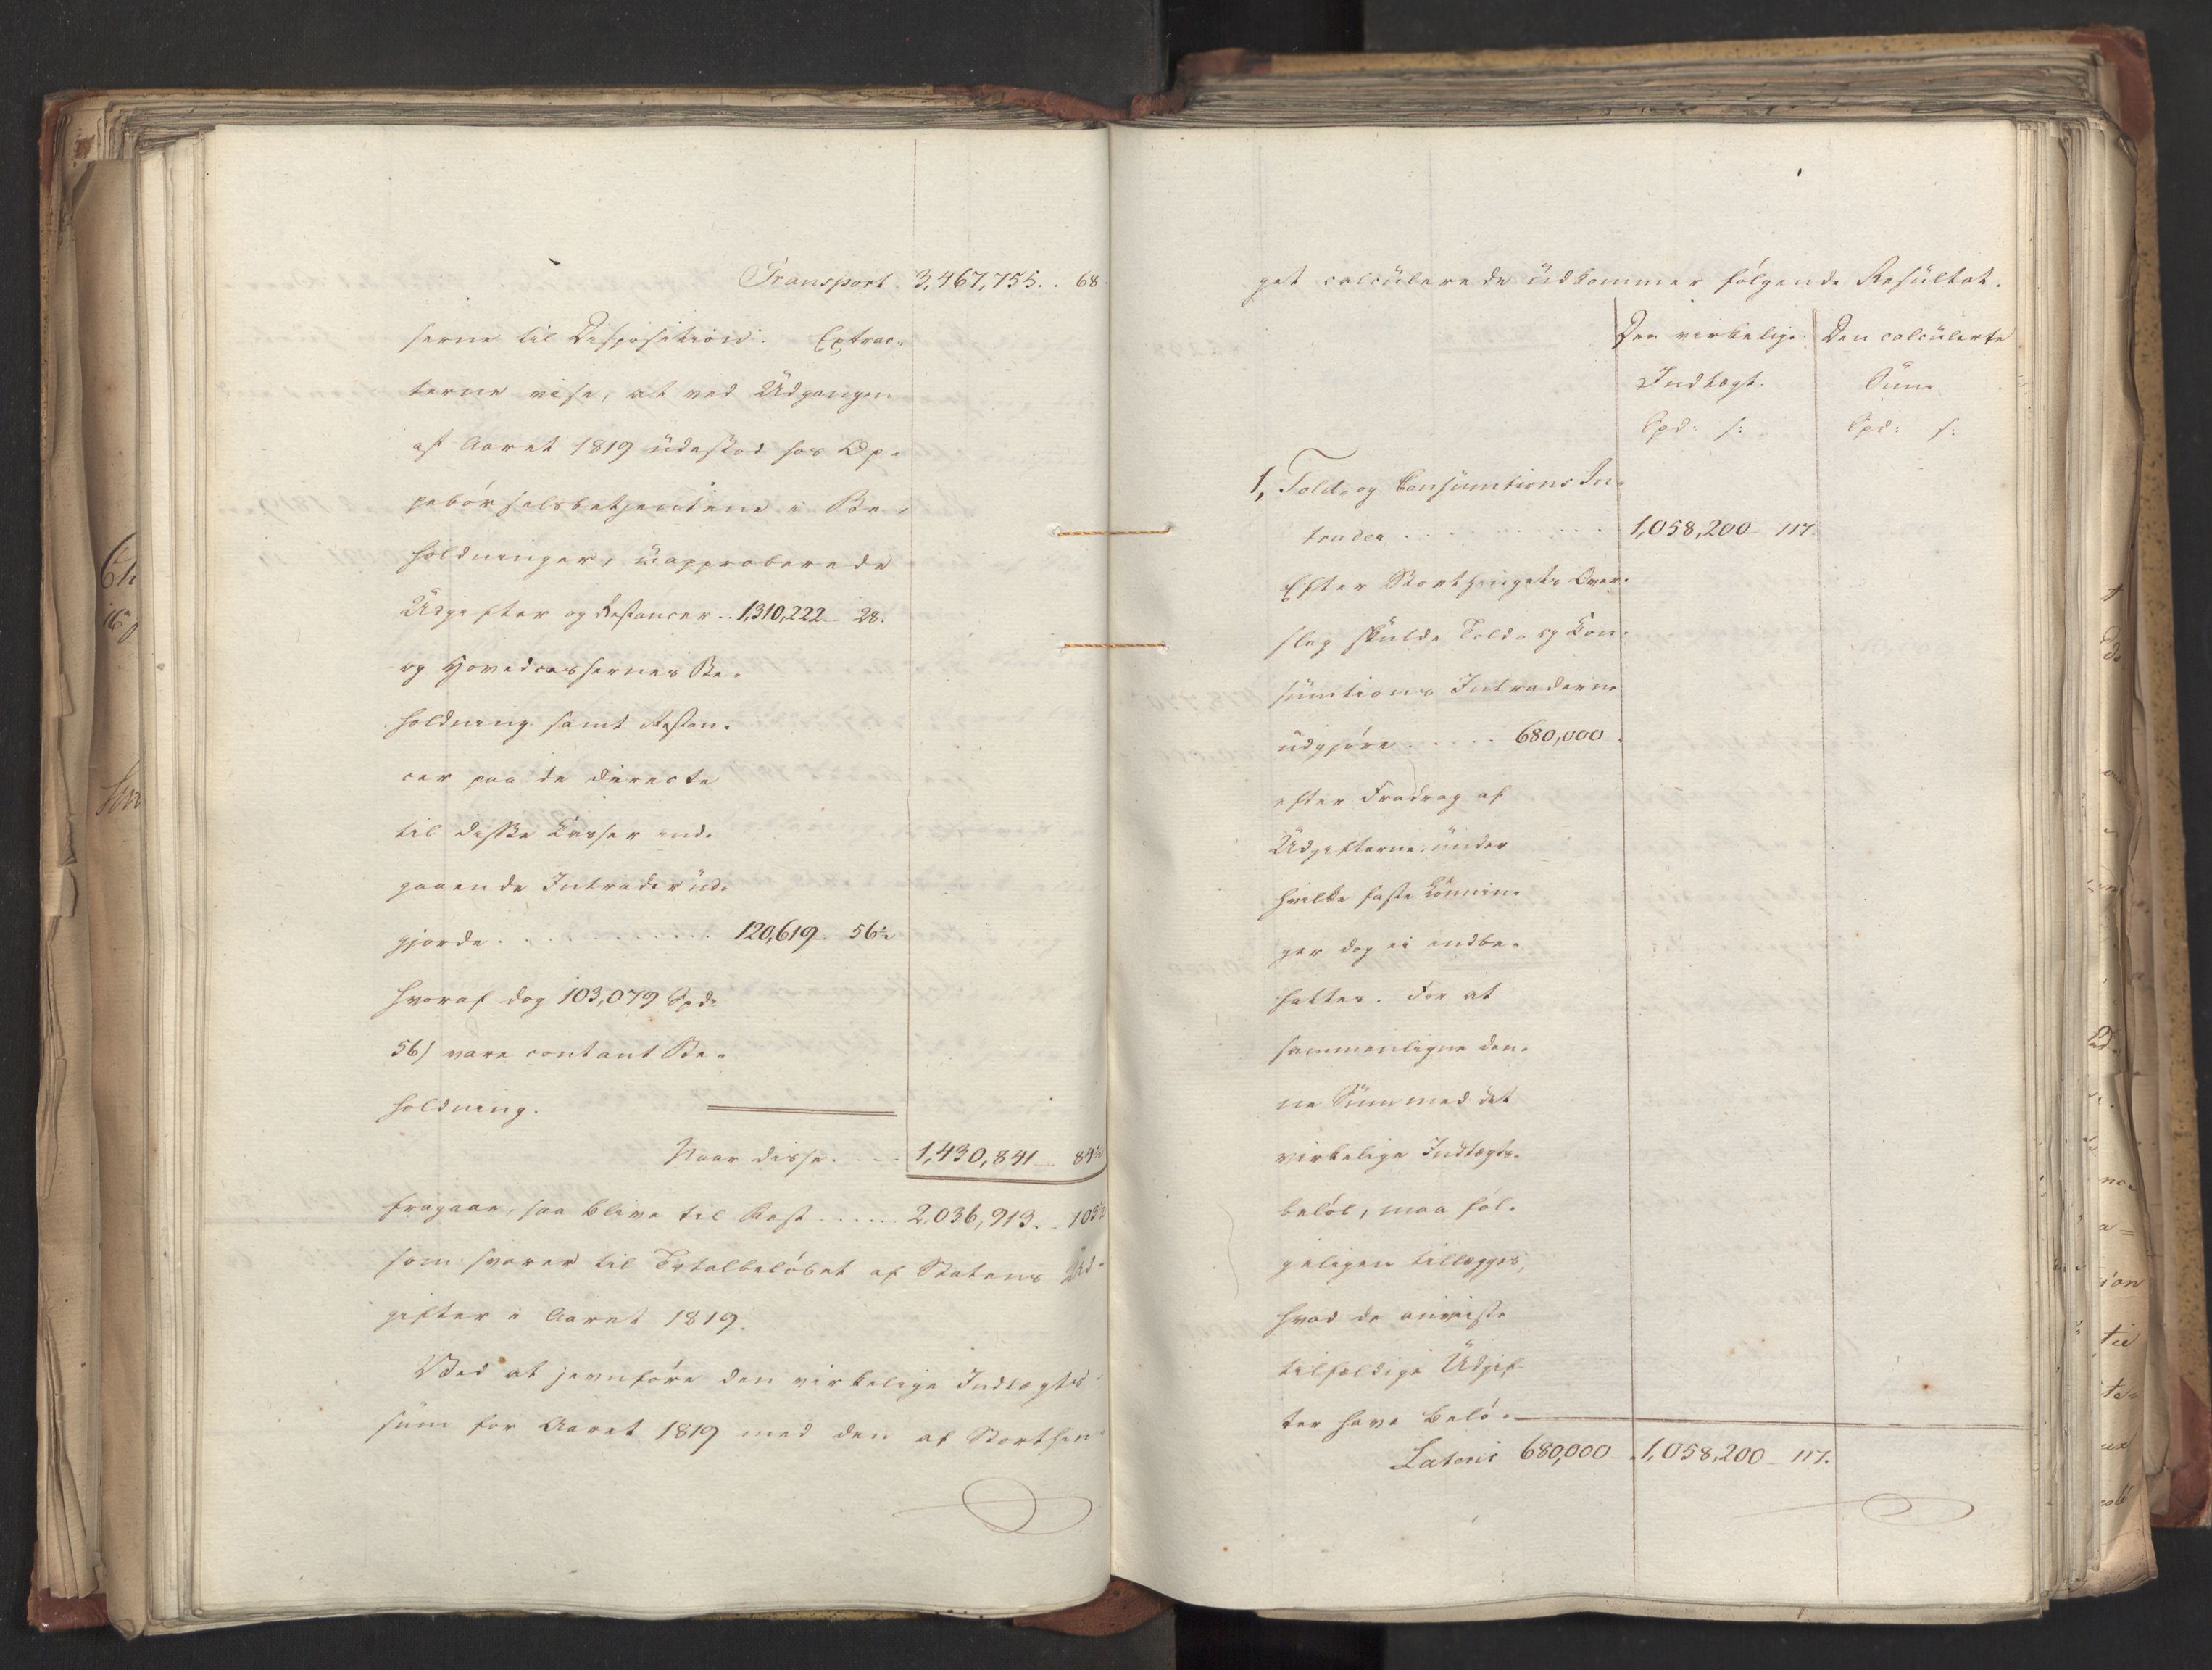 Transport. 3,467,755.. 68.
serne til Disposition. Extrac-
terne vise, at ved Udgangen
af Aaret 1819 udestod hos Op-
pebørselsbetjentene i Be-
holdninger, uapproberede
Udgifter og Restancer .. 1,310,222 28.
og Hovedcassernes Be-
holdning samt Restan-
cer paa de directe
til disse Kasser ind-
gaaende Intrader ud-
gjorde . . . . . . 120,619 56½
hvoraf dog 103,079 Spd
56 s vare contant Be-
holdning.
Naar disse . . . 1,430,841 84½
fragaae, saa blive til Rest ..... 2,036,913. 103½
som svarer til Totalbeløbet af Statens Ud-
gifter i Aaret 1819.
Ved at jevnføre den virkelige Indtægts-
sum for Aaret 1819 med den af Storthin-
get calculerede udkommer følgende Resultat.
Den virkelige Den calculerte
Indtægt. Sum.
Spd: s: Spd: s:
1, Told- og Consumtions In-
trader . . . . . . 1,058,200 117.
Efter Storthingets Over-
slag skulde Told- og Kon-
sumtions Intraderne
udgjøre ..... 680,000.
efter Fradrag af
Udgifterne, under
hvilke faste Lønnin-
ger dog ei indbe-
fattes. For at
sammenligne den-
ne Sum med det
virkelige Indtægts-
beløb, maa føl-
geligen tillægges,
hvad de anviste
tilfældige Udgif-
ter have beløb-
Lateris 680,000 1,058,200 117.